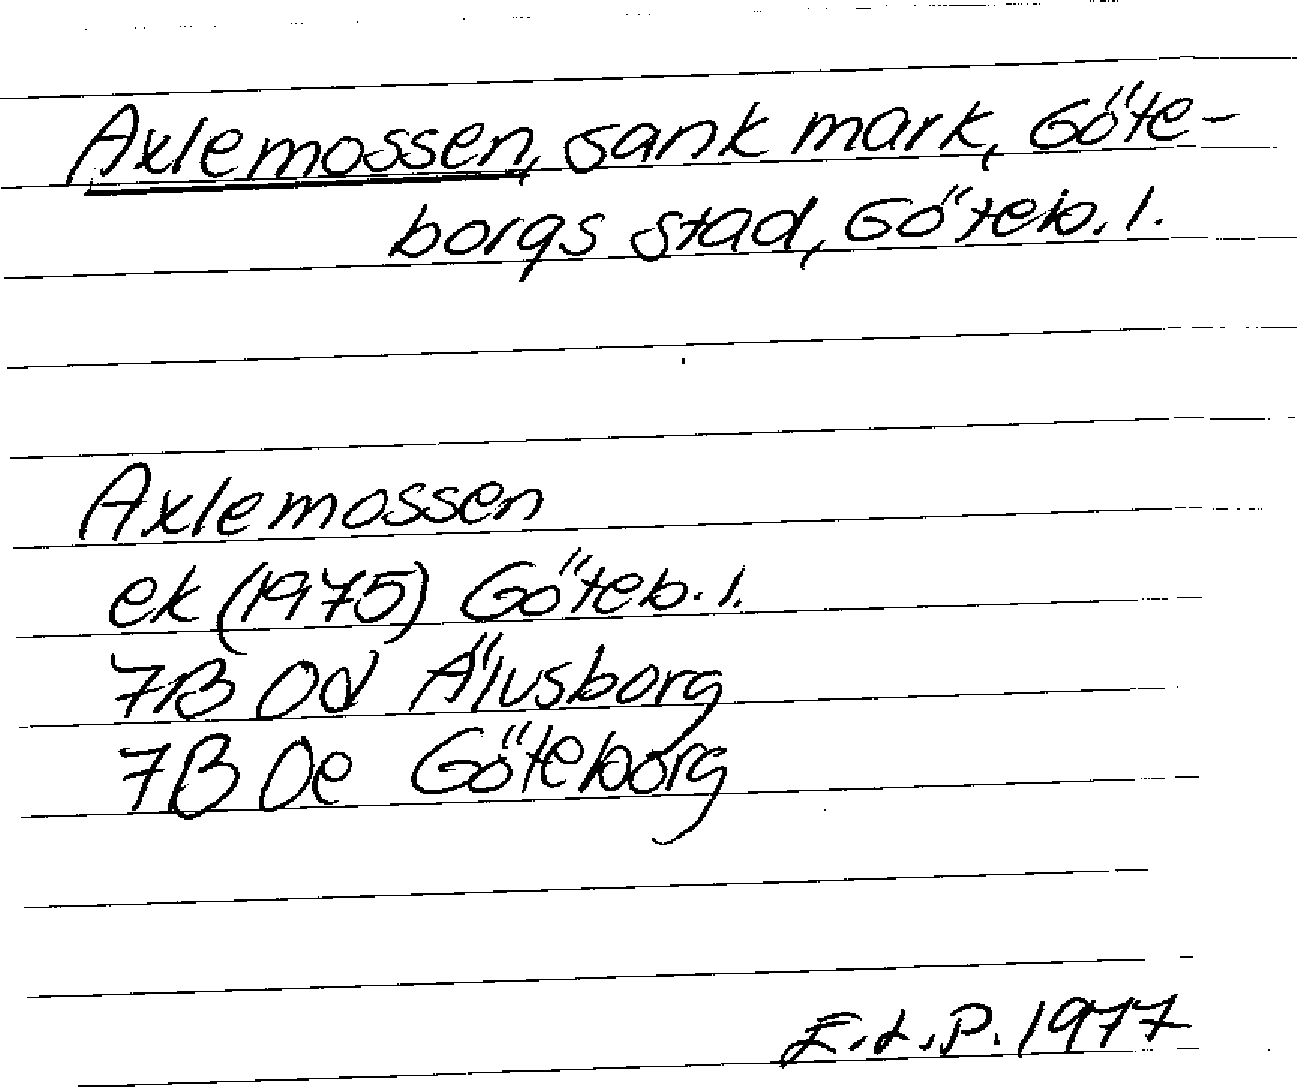 Axlemossen, sank mark, Göte-
borgs stad, Göteb. l.
Axlemossen
ek (1975) Göteb. l.
7B 0d Älvsborg
7B 0e Göteborg
E.L.P. 1977